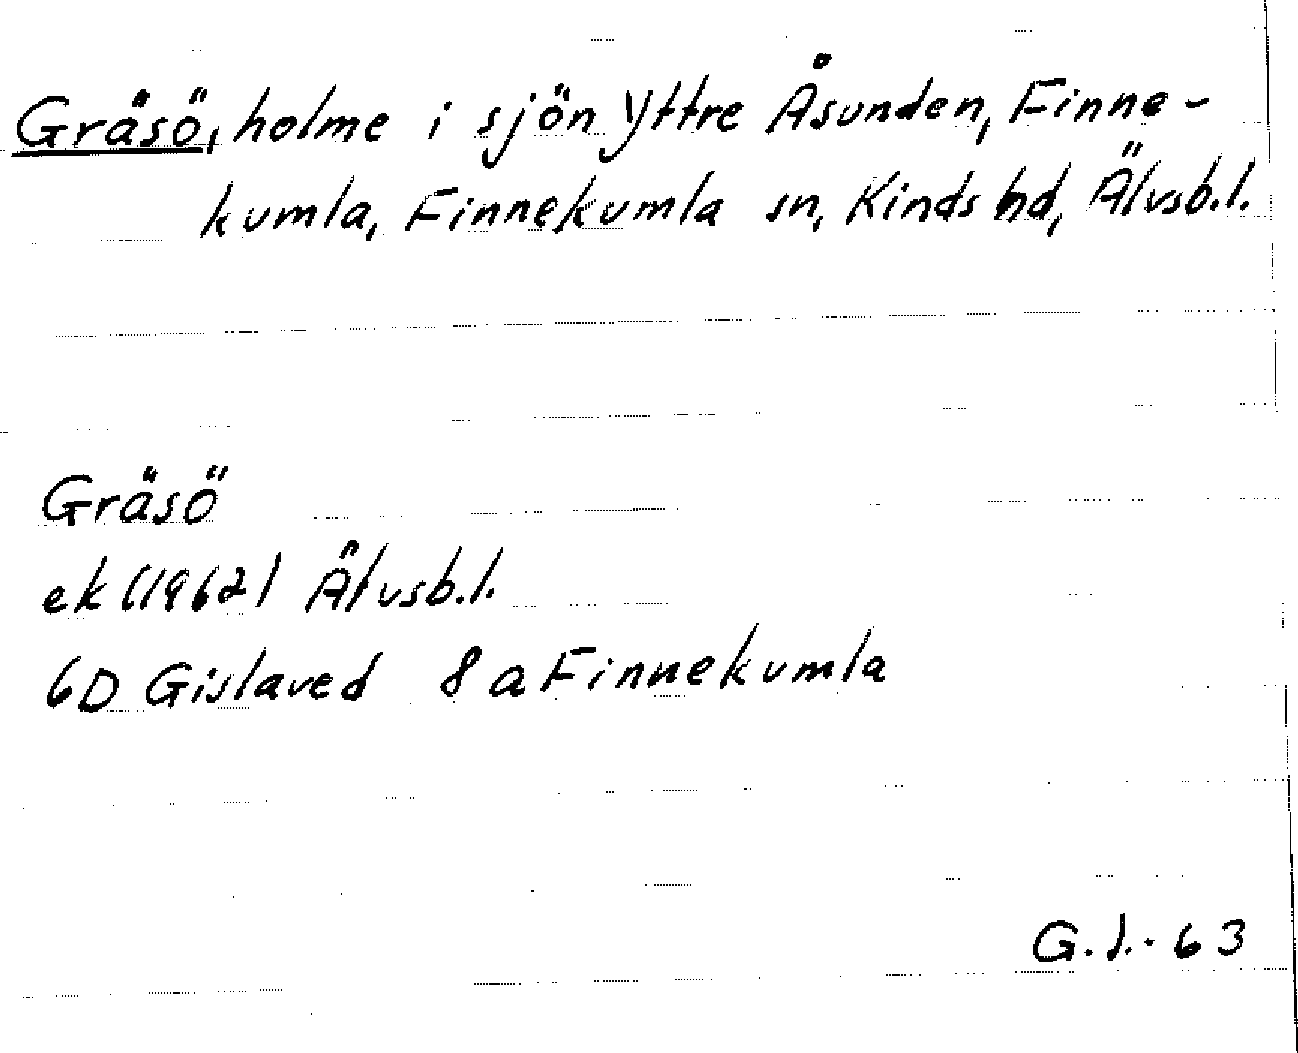 Gräsö, holme i sjön Yttre Åsunden, Finne-
kumla, Finnekumla sn, Kinds hd, Älvsb.l.
Gräsö
ek (1962) Älvsb.l.
6D Gislaved 8a Finnekumla
G.J.-63